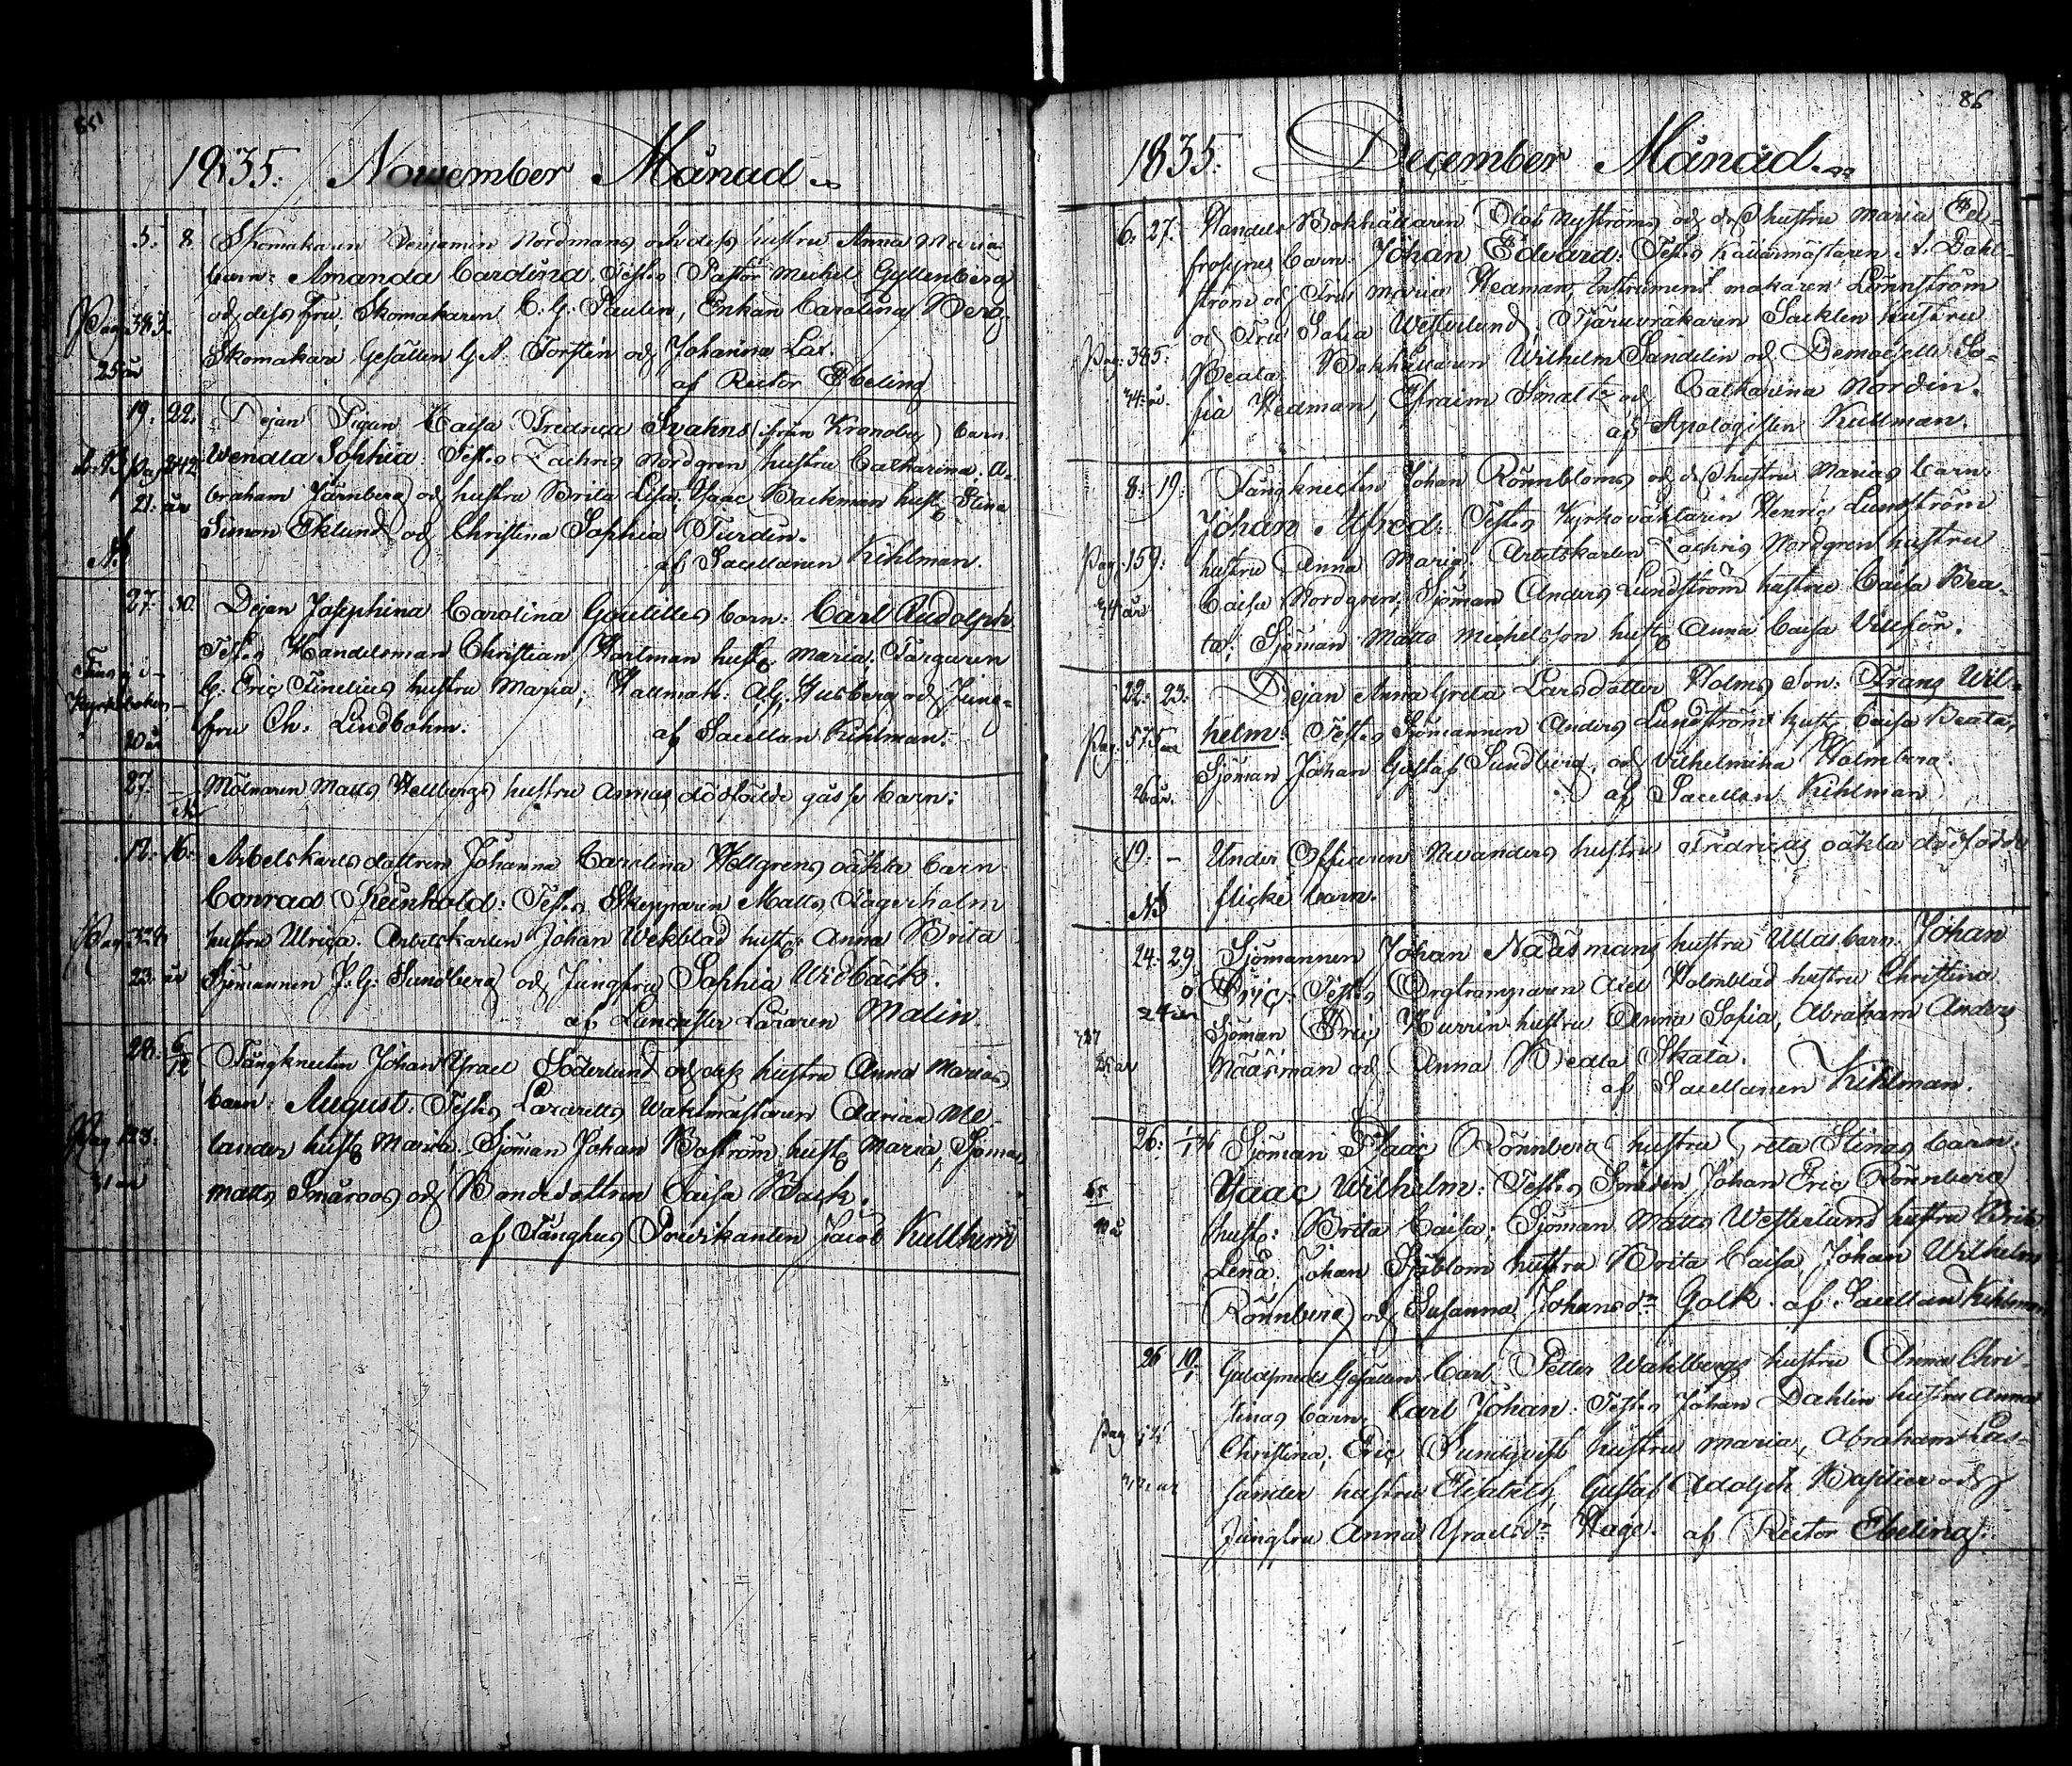 85
1835. November Månad
5. 8. Skomakaren Benjamin Nordmans och dess hustru Anna Marias
barn: Amanda Carolina. Testes Pastor Michel Gyllenberg
och dess fru, Skomakaren C. G. Paulin, Enkan Carolina Berg,
Pag. 383.
Skomakare Gesällen G. A. Torstin och Johanna Lax.
25 år
af Rector Ebeling
19. 22. Dejan Pigan Caisa Fredrica Svahns (ifrån Kronoby) barn
Wendla Sophia: Testes Zachris Nordgren hustru Catharina, A-
Pag 342
braham Järnberg och hustru Brita Lisa; Isaac Backman hust: Stina
21. år
Simon Eklund och Christina Sophia Turdin.
af Sacellanen Kihlman.
27. 30. Dejan Josephina Carolina barn: Carl Rudolph
Testes Handelsman Christian Hartman hust: Maria. Färgaren
Finns ej i
G. Eric Finelius hustru Maria; A. G. Husberg och Jung-
Kyrkoboken
fru Ch. Lindbohm. af Sacellan Kihlman.
20 år
27. – Mölnaren Matts Hellbergs hustru Annas dödfödde gosse barn:
12. 16. Arbetskarls dottren Johanna Carolina Hellgrens oäkta barn
Conrad Reinhold: Testes Skepparen Matts Lägerholm
hustru Ulrica. Arbetskarlen Johan Wekblad hust: Anna Brita
23. år Sjömannen J. G. Sundberg och Jungfru Sophia Widbäck.
af Lancaster Läraren Malin
28. 6/12 Fångknecten Johan Israel Söderlund och dess hustru Anna Marias
barn: August: Testes Lazaretts Waktmästaren Adrian Me-
lander hust: Maria, Sjöman Johan Boström hust: Maria, Sjöman
31 år Matts Småroos och Bondedottren Caisa Back.
af Fånghus Predikanten Jacob Kullhem

86
1835. December Månad
6. 27. Handels Bokhållaren Olof Nyströms och dess hustru Maria Eu-
frosynes barn: Johan Edvard: Testes Källarmästaren A. Dahl-
ström och Fru Maria Hedman, Instrument makaren Lönnström
och Fru Sofia Westerlund, Tjäruvräkaren Sacklen hustru
Pag. 385.
Beata. Bokhållaren Wilhelm Sandelin och Demoiselle So-
34. år
fia Hedman, Efraim Smaltz och Catharina Nordin.
af Apologisten Kullman.
8. 19. Fångknecten Johan Rönnbloms och dess hustru Marias barn
Johan Alfred: Testes Kyrkovaktaren Henric Lundström
Pag. 159.
hustru Anna Maria. Arbetskarlen Zachris Nordgren hustru
Caisa Nordgren; Sjöman Anders Lundström hustru Caisa Bea-
ta; Sjöman Matts Michelsson hust: Anna Caisa Villför.
22. 23. Dejan Anna Greta Larsdotter Holms son: Frans Wil-
helm: Testes Sjömannen Anders Lundström hust: Caisa Beata,
Pag. 575
Sjöman Johan Gustaf Sundberg, och Vilhelmina Holmberg.
26 år.
af Sacellan Kihlman
19. – Under Officeren Nevanders hustru Fredricas oäkta dödfödde
flicke barn.
24. 29. Sjömannen Johan Nääsmans hustru Ullas barn: Johan
Eric. Testes Orgtramparen Axel Holmblad hustru Christina
24 år
Sjöman Eric Hurrin hustru Anna Sofia, Abraham Anders
Nääsman och Anna Beata Skata.
af Sacellanen Kihlman.
26. 1/1 36 Sjöman Isaac Rönnberg hustru Greta Stinas barn:
Isaac Wilhelm: Testes Smeden Johan Eric Rönnberg
hust: Brita Caisa; Sjöman Matts Westerlund hustru Brita
Lena. Johan Sjöblom hustru Brita Caisa, Johan Wilhelm
Rönnberg och Susanna Johansdr Golk. af Sacellan Kihlman
26 10/1 Guldsmeds Gesällen Carl Petter Wahlbergs hustru Anna Chri-
stinas barn. Carl Johan: Testes Johan Dahlin hustru Anna
Christina, Eric Sundqvist hustru Maria, Abraham Las-
sander hustru Elisabeth, Gustaf Adolph Basilier och
Jungfru Anna Israelsdr Hage. af Rector Ebeling.